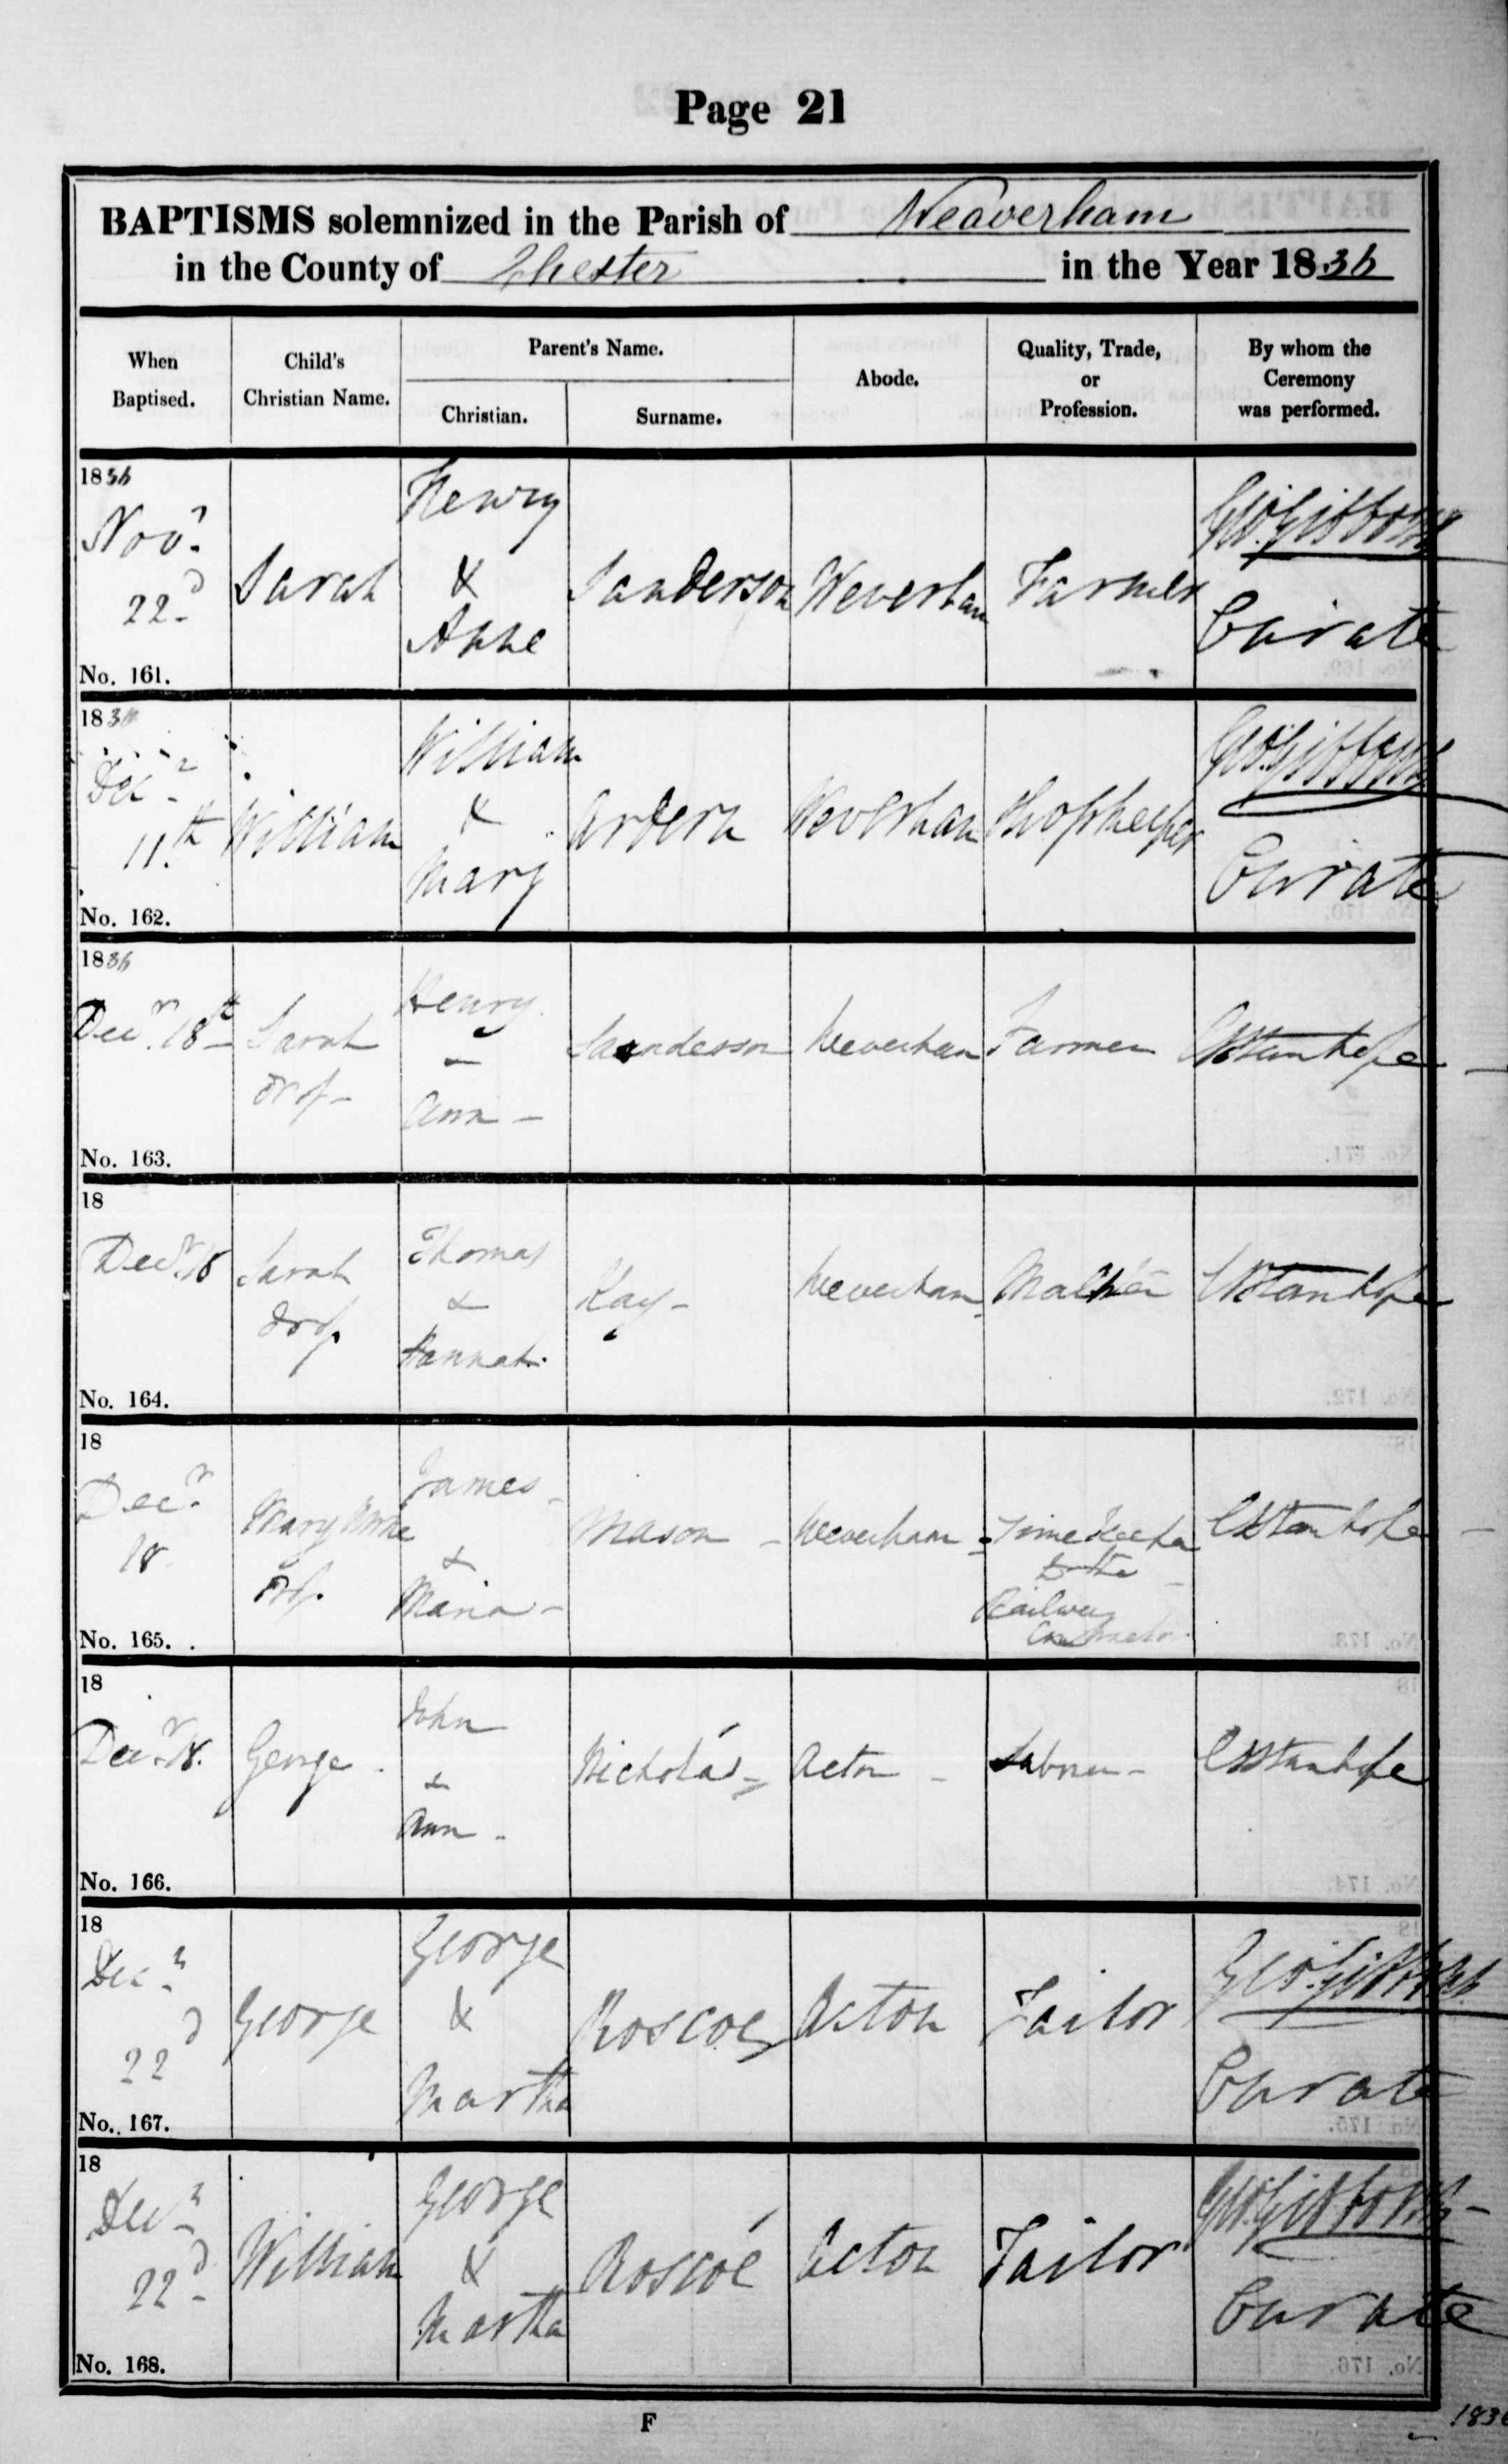 Page 21
BAPTISMS solemnized in the Parish of Weaverham
in the County of Chester in the Year 1836
When Baptised.
Child's Christian Name.
Parent's Name.
Christian.
Surname.
Abode.
Quality, Trade, or Profession.
By whom the Ceremony was performed.
1836
Novr 22d
No. 161.
Sarah
Henry
&
Anne
Sanderson
Weverham
Farmer
Geo: Gibbons
Curate
1836
Decr
11th
No. 162.
William
William
&
Mary
Ardern
Weverham
Shopkeeper
Geo: Gibbons
Curate
1836
Decr. 18th
No. 163.
Sarah
Henry
Ann -
Weeverham
Farmer
CS Stanhope
18
Decr 18
No. 164.
Sarah
Thomas
&
Hannah
Kay -
Weeverham
CS Stanhope
18
Decr
18
No. 165.
Mary Anne
James
&
Maria -
Mason -
Weeverham
Time Keeper
to the
Railway
Contractor
CS Stanhope
18
Decr 18.
No. 166.
George
John
&
Ann -
Nicholas
Acton -
Labourer -
CS Stanhope
18
Decr
22d
No. 167.
George
George
&
Martha
Roscoe
Acton
Tailor
Geo: Gibbons
Curate
18
Decr
22d
No. 168.
William
George
&
Martha
Roscoe
Acton
Tailor
Geo: Gibbons
Curate
F